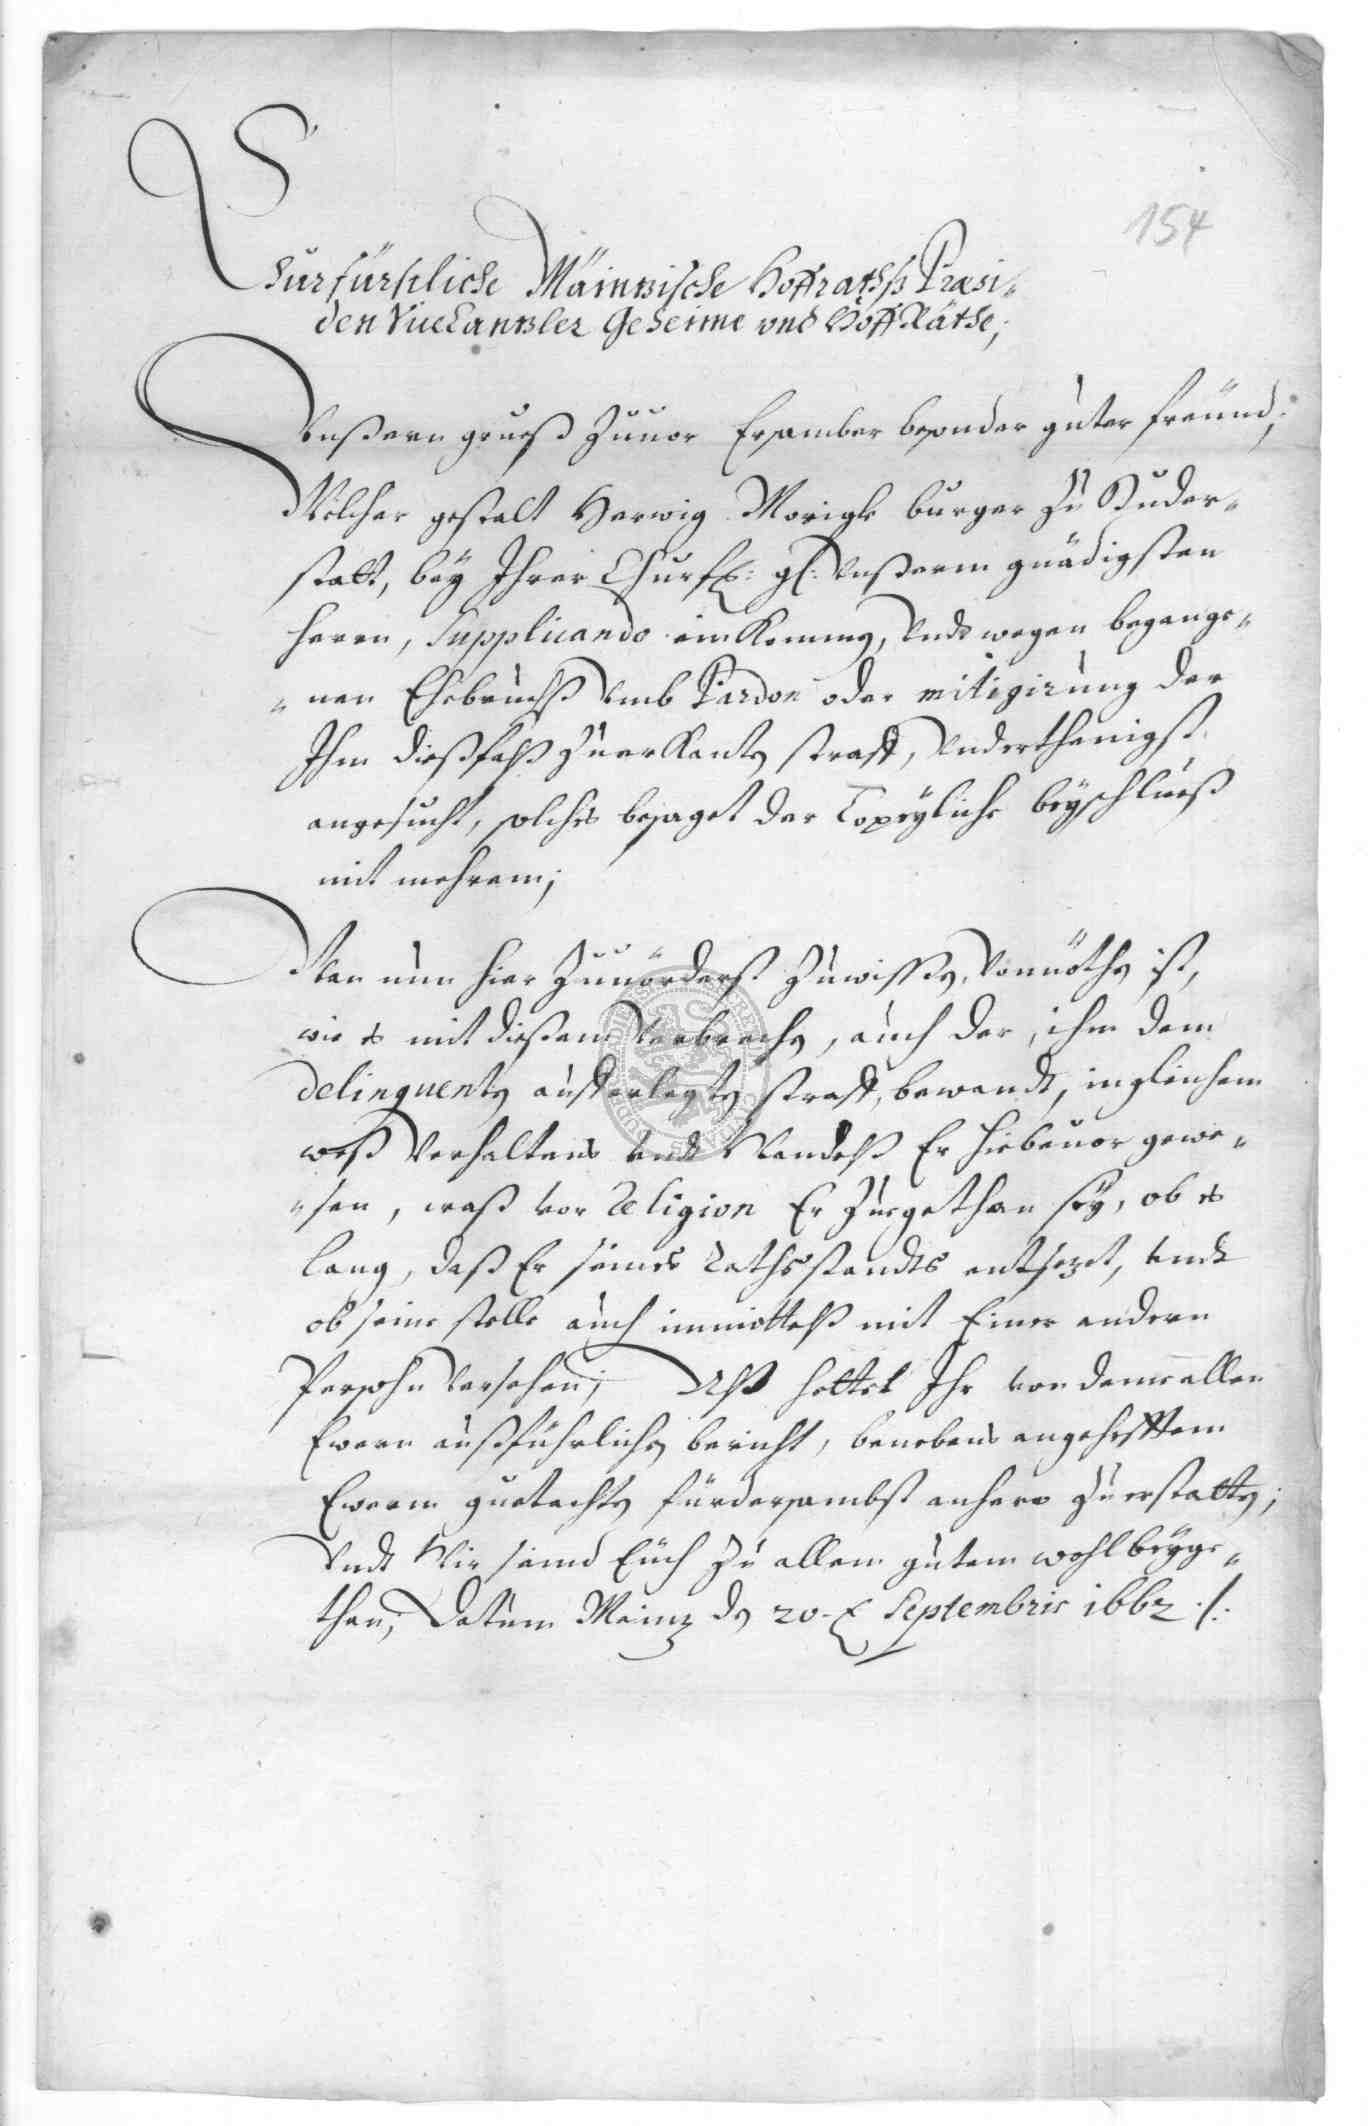 154
Churfürstliche Mäintzische Hoffrathß Præsi-
den Vicecantzler Geheime vnd Hoff Räthe;
Vnßern grueß Zuuor Ersamber besonder guter freünd;
Welcher gestalt Herwig Morigk burger zu Duder-
statt, bey Ihrer Churfl: gl: Vnßerm gnädigsten
Herrn, Supplicando ein Kommen, Vndt wegen begange-
-nen Ehebruchß Vmb Pardon oder mitigirung der
Ihm dießfalß Zuerkanten straff, Vnderthenigst
angesucht, solches besaget der Copeyliche beyschlueß
mit mehrem;
Wan nun hier Zuuörderst Zuwissen, Vonnöthen ist,
wie es mit dießem Verbrechen, auch der, ihm dem
delinquenten aufferlegten straff, bewandt, ingleichem
weß Verhaltens Vndt Wandelß Er hiebeuor gewe-
-sen, waß vor Religion Er Zugethan sey, ob es
lang, daß Er seines Rathsstandts entsezet, Vndt
ob seine stelle auch inmittelß mit Einer andern
Persohn Versehen; Alß hettet Ihr von deme allen
Ewern außführlichen bericht, benebens angehefftem
Ewerm guetachten fürdersambst anhero Zu erstatten;
Vndt Wir seind Euch Zu allem gutem wohl beyge-
than, Datum Mainz den 20. Septembris 1662 ./.